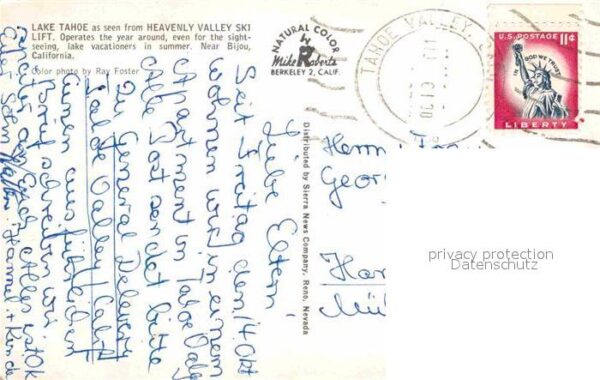 LAKE TAHOE as seen from HEAVENLY VALLEY SKI
LIFT. Operates the year around, even for the sight-
seeing, lake vacationers in summer. Near Bijou,
California.
Color photo by Ray Foster
NATURAL COLOR
by
Mike Roberts
BERKELEY 2, CALIF.
TAHOE VALLEY,
U.S. POSTAGE 11¢
IN GOD WE TRUST
LIBERTY
Distributed by Sierra News Company, Reno, Nevada
Liebe Eltern!
Seit Freitag den 14. Okt
wohnen wir in einem
Apartment in Tahoe Valley
Alle Post sendet bitte
zur General Delivery
Tahoe Valley / Calif
Einen ausführlichen
Brief schreiben wir
Alles ist OK
Herrn
Geor
Han
Mü
privacy protection
Datenschutz